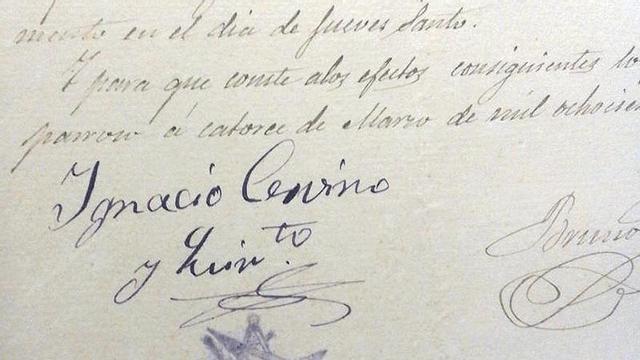 mento en el dia de Jueves Santo.
Y para que conste alos efectos consiguientes lo
parroco á catorce de Marzo de mil ochocien
Ignacio Cervino
Bruno
y